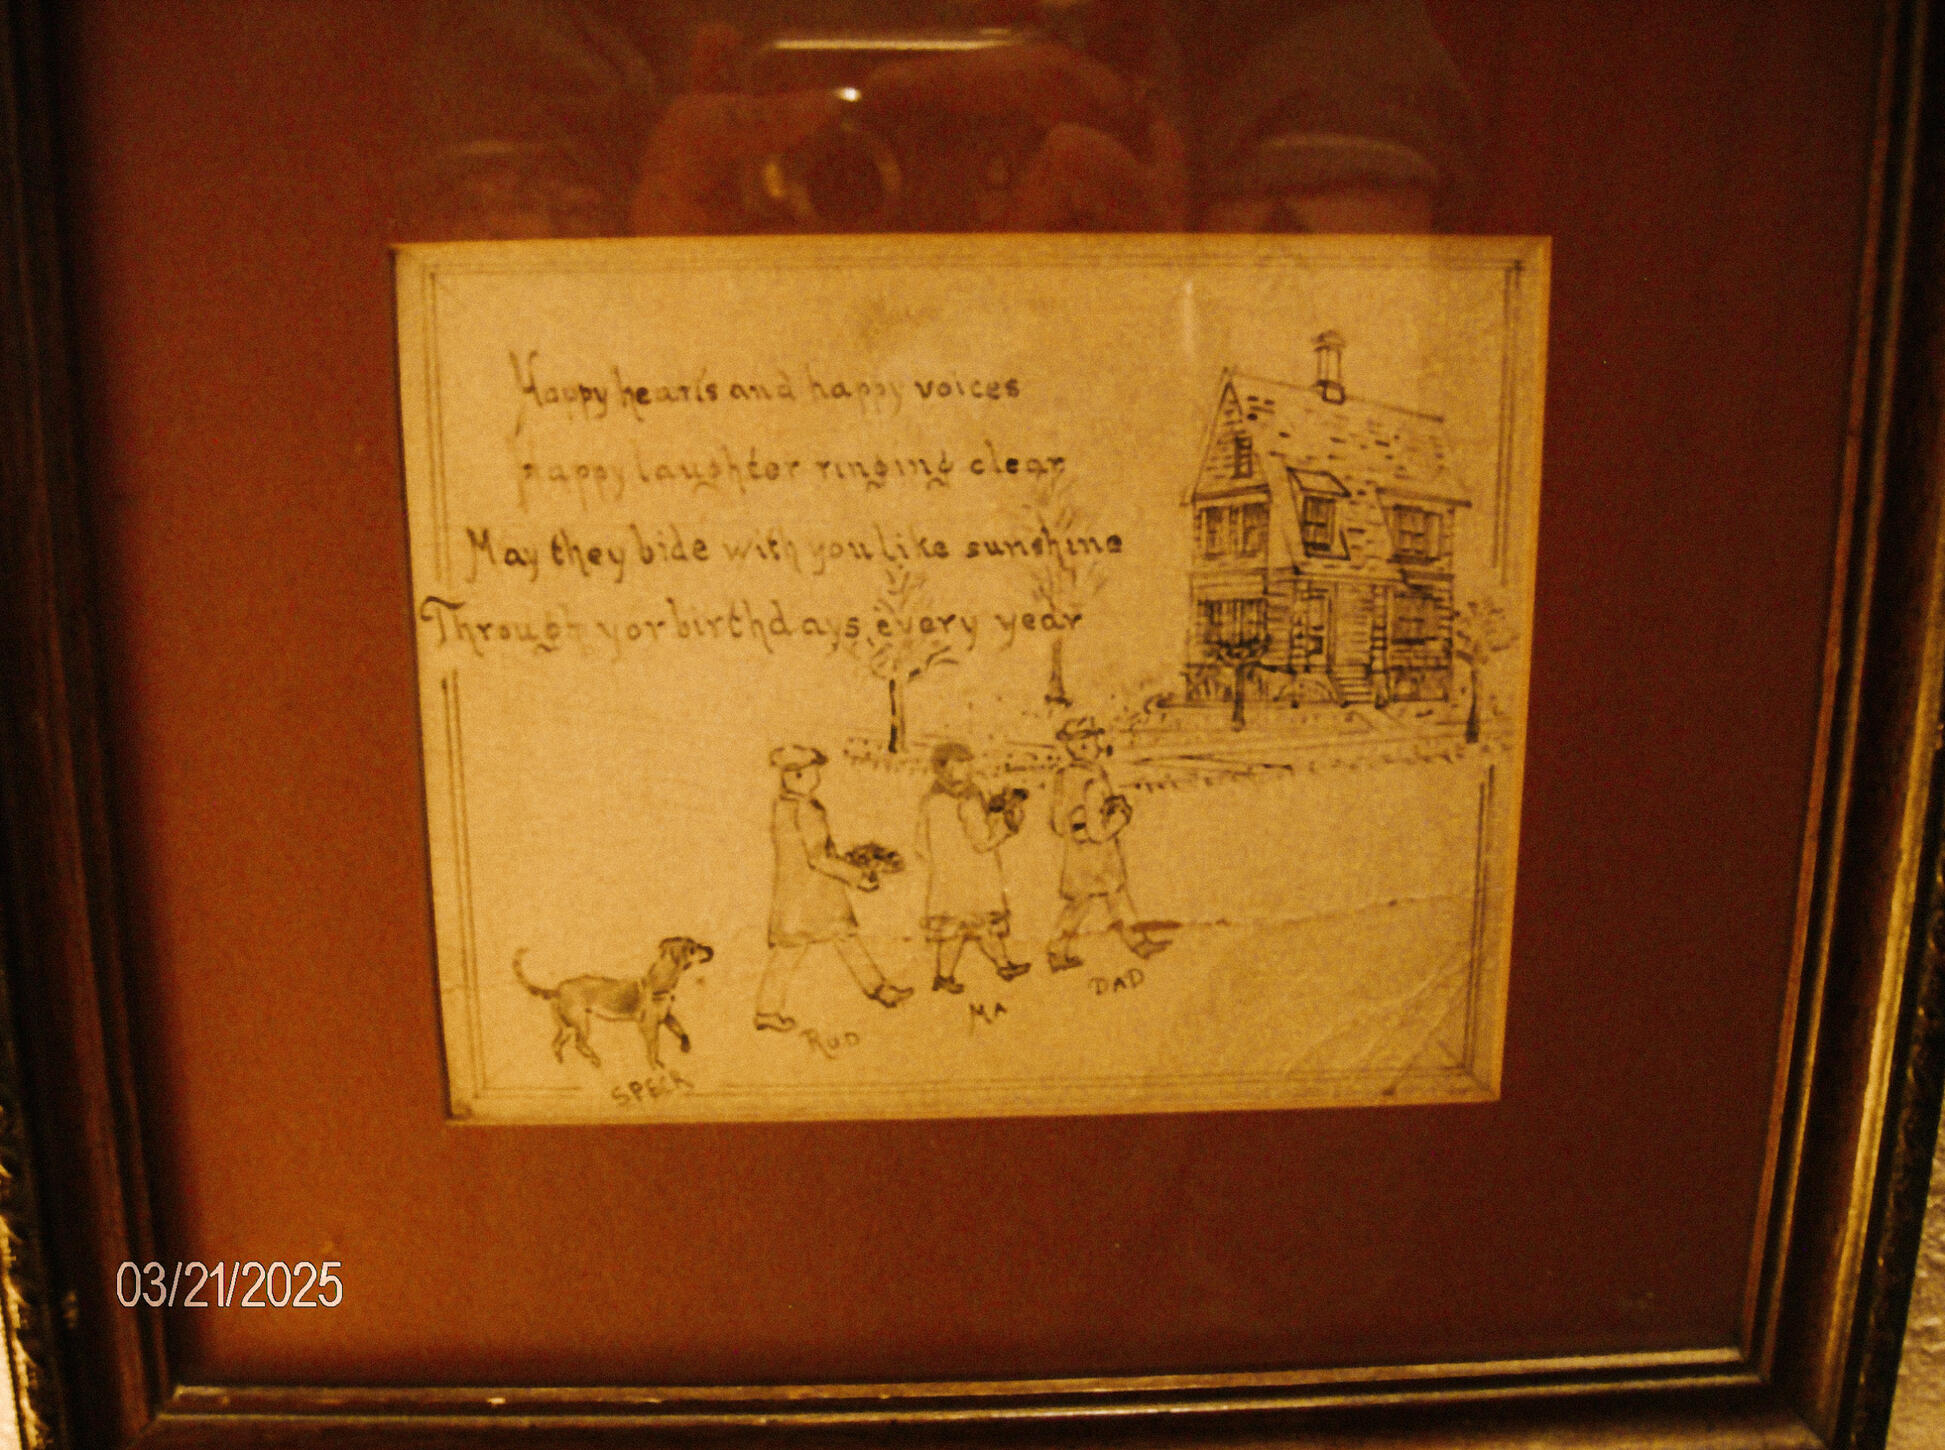 Happy hearts and happy voices
Happy laughter ringing clear
May they bide with you like sunshine
Through yor birthdays, every year
DAD
MA
RUD
SPECK
03/21/2025